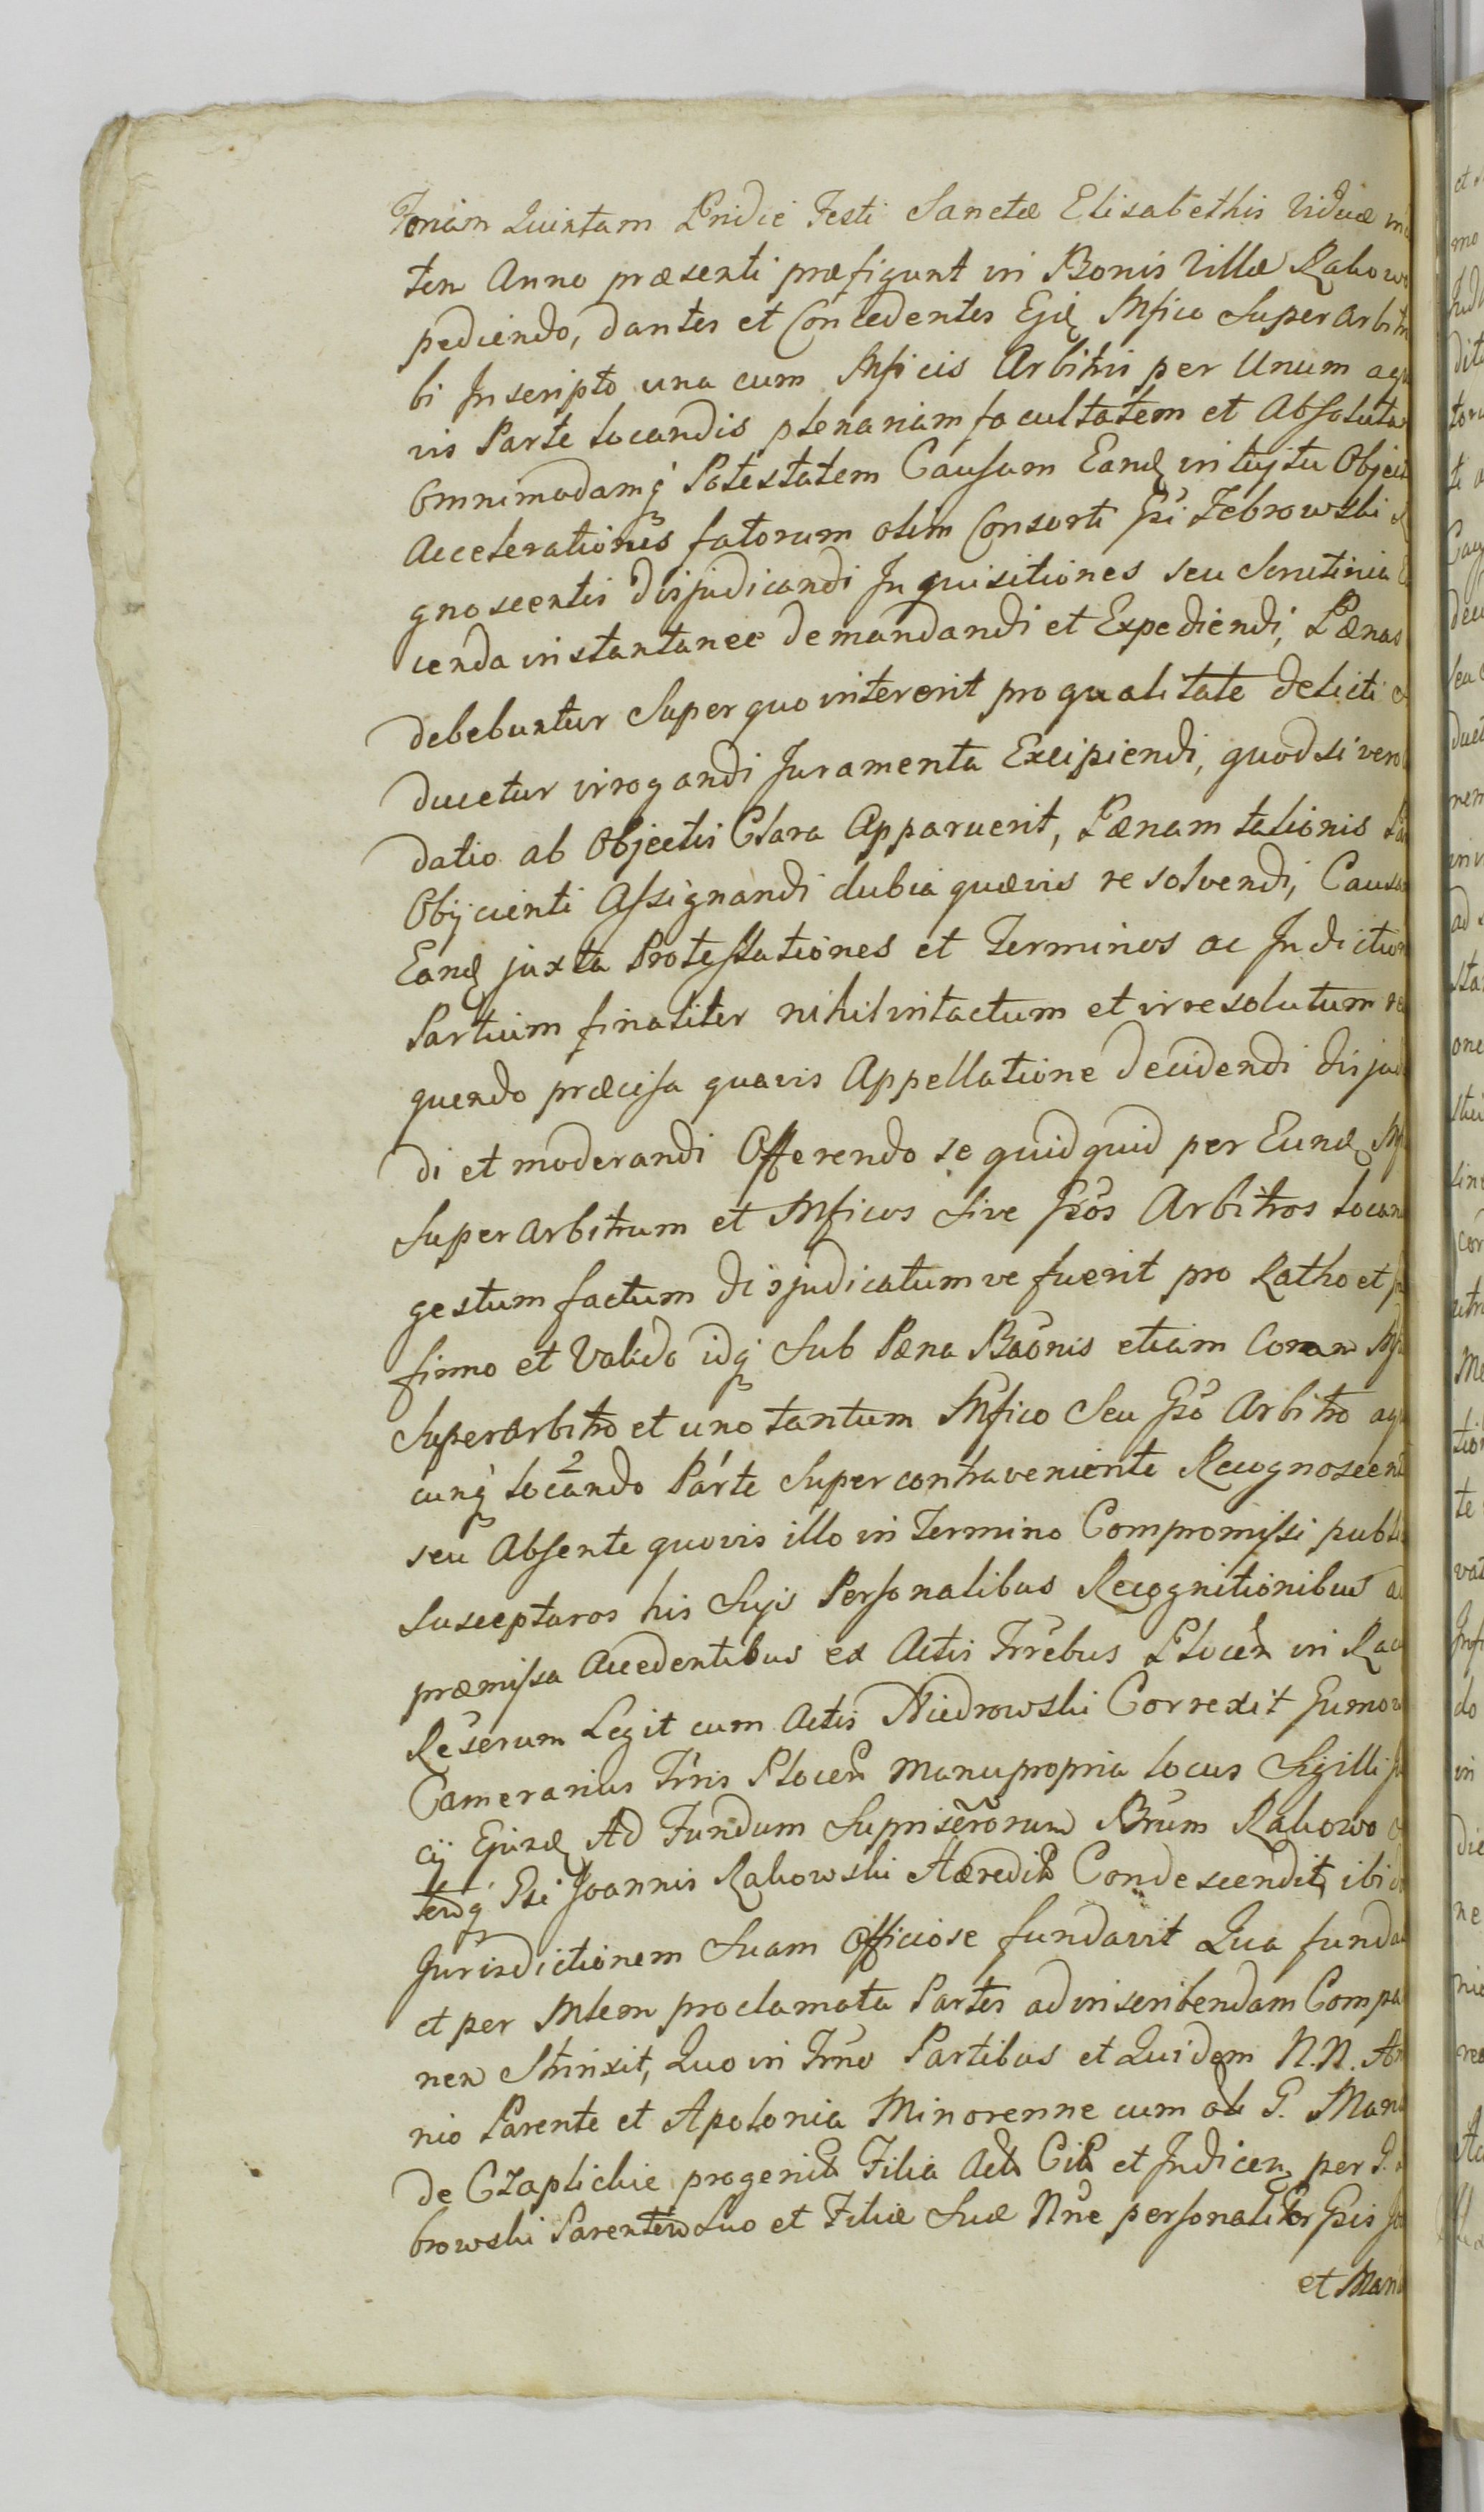 Feriam Quintam Pridie Festi Sanctæ Elisabethis Viduæ in
ten Anno præsenti præfigunt in Bonis Villæ Rakow
pediendo, dantes et Concedentes Ejd Mfico Superarbitr
bi Inscripto una cum Mficis Arbitris per Unum aqu
vis Parte locandis plenariam facultatem et Absoluta
Omnimodamq Potestatem Causam Eand intujtu Objec
Accelerationis fatorum olim Consorti Gsi Zebrowski
gnoscentis disjudicandi Inquisitiones seu Scrutinia
cenda instantanee demandandi et Expediendi, Pænas
debebuntur Super quo intererit pro qualitate delicti
ducetur irrogandi Juramenta Excipiendi, quodsi vero
datio ab Objectis Clara Apparuerit, Pænam talionis
Objicienti Assignandi dubia quævis resolvendi, Causa
Eand juxta Protestationes et Terminos ac Indiction
Partium finaliter nihil intactum et irresolutum re
quendo præcisa quavis Appellatione decidendi disjud
di et moderandi Offerendo se quidquid per Eund
Superarbitrum et Mficos Sive Gsos Arbitros locan
gestum factum disjudicatumve fuerit pro Ratho et
firmo et Valido idq Sub Pæna Baonis etiam Coram
Superarbitro et uno tantum Mfico Seu Gso Arbitro aqu
cunq locando Parte Super contraveniente Recognoscent
seu Absente quovis illo in Termino Compromissi publ
Suscepturos his Sujs Personalibus Recognitionibus a
præmissa Accedentibus ex Actis Trrebus Plocen in Rac
Reserum Legit cum Actis Niedrowski Correxit Gumow
Camerarius Trris Plocen manupropria locus Sigilli
cij Ejusd Ad Fundum Supriserorum Brum Rakowo
terq Gsi Joannis Rakowski Hæredit Condescendit, ibi
Jurisdictionem Suam Officiose fundavit Qua funda
et per Mlem proclamata Partes ad inscribendam Compa
nen Strinxit, Quo in Trno Partibus et Quidem N.N. An
nio Parente et Apolonia Minorenne cum oll G. Mari
de Czaplickie progenit Filia Actt Citt et Indicen per G.
browski Parentem Suo et Filiæ Suæ Nne personaliter Gsis
et Mari